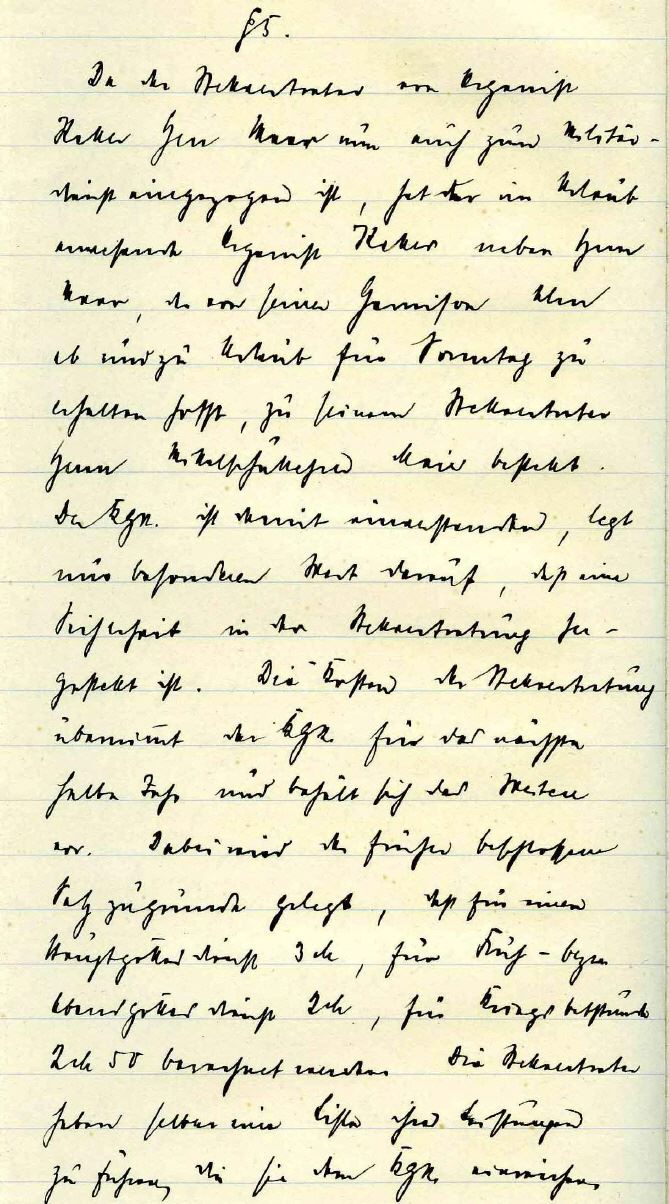 §5.
Da der Stellvertreter von Organist
Keller Herr Maer nun auch zum Militär-
dienst eingezogen ist, hat der im Urlaub
anwesende Organist Keller neben Herrn
Maer, der von seiner Garnison Ulm
ab und zu Urlaub für Sonntag zu
erhalten hofft, zu seinem Stellvertreter
Herrn Mittelschullehrer Maier bestellt.
Der KGR. ist damit einverstanden, legt
nur besonderen Wert darauf, daß eine
Sicherheit in der Stellvertretung her-
gestellt ist. Die Kosten der Stellvertretung
übernimmt der KGR. für das nächste
halbe Jahr und behält sich das Weitere
vor. Dabei wird der früher beschlossene
Satz zugrunde gelegt, daß für einen
Hauptgottesdienst 3 M, für Früh- bezw.
Abendgottesdienst 2 M, für Kriegsbetstunde
2 M 50 berechnet werden. Die Stellvertreter
haben selber eine Liste ihrer Leistungen
zu führen, die sie dem KGR. einreichen.